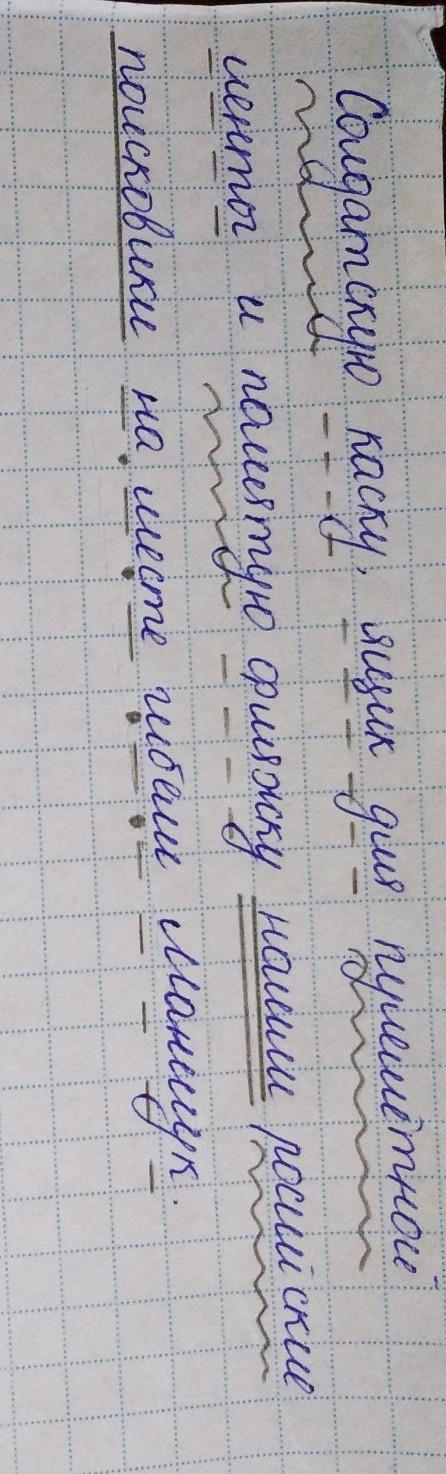 Солдатскую каску, ящик для пулемётной
ленты и помятую фляжку нашли росийские
поисковики на месте гибели Маншук.